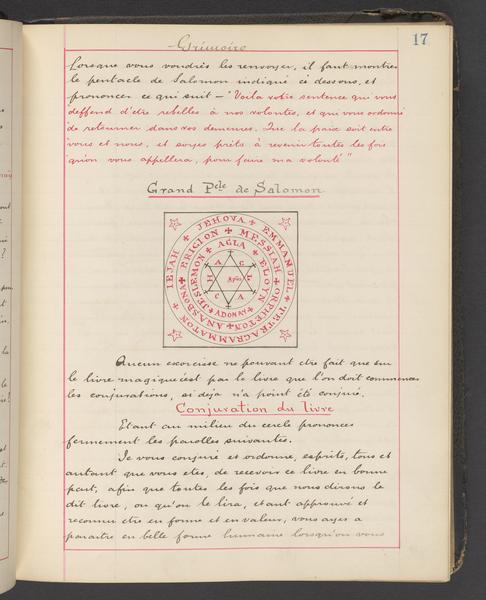 Grimoire
17
Lorsque vous voudrés les renvoyer, il faut montrer
le pentacle de Salomon indiqué ci dessous, et
prononcer ce qui suit — "Voila votre sentence qui vous
deffend d'etre rebelles à nos volontes, et qui vous ordonne
de retourner dans vos demeures. Que la paix soit entre
vous et nous, et soyes prêts à revenir toutes les fois
qu'on vous appellera, pour faire ma volonté"
Grand Pcle de Salomon
JEHOVA + EMMANUEL + TETRAGRAMMATON + IEJAH +
ERIGION + MESSIAH + ELOYN + ORCHETON + ANASBONA + JESSEMON +
AGLA + ADONAY +
A G L A
Aucun exorcisse ne pouvant etre fait que sur
le livre magique c'est par le livre que l'on doit commencer
les conjurations, si deja n'a point été conjuré.
Conjuration du livre
Etant au milieu du cercle prononces
fermement les parolles suivantes.
Je vous conjure et ordonne, esprits, tous et
autant que vous etes, de recevoir ce livre en bonne
part, afin que toutes les fois que nous dirons le
dit livre, ou qu'on le lira, etant approuvé et
reconnu etre en forme et en valeur, vous ayes a
paraitre en belle forme humaine lorsqu'on vous